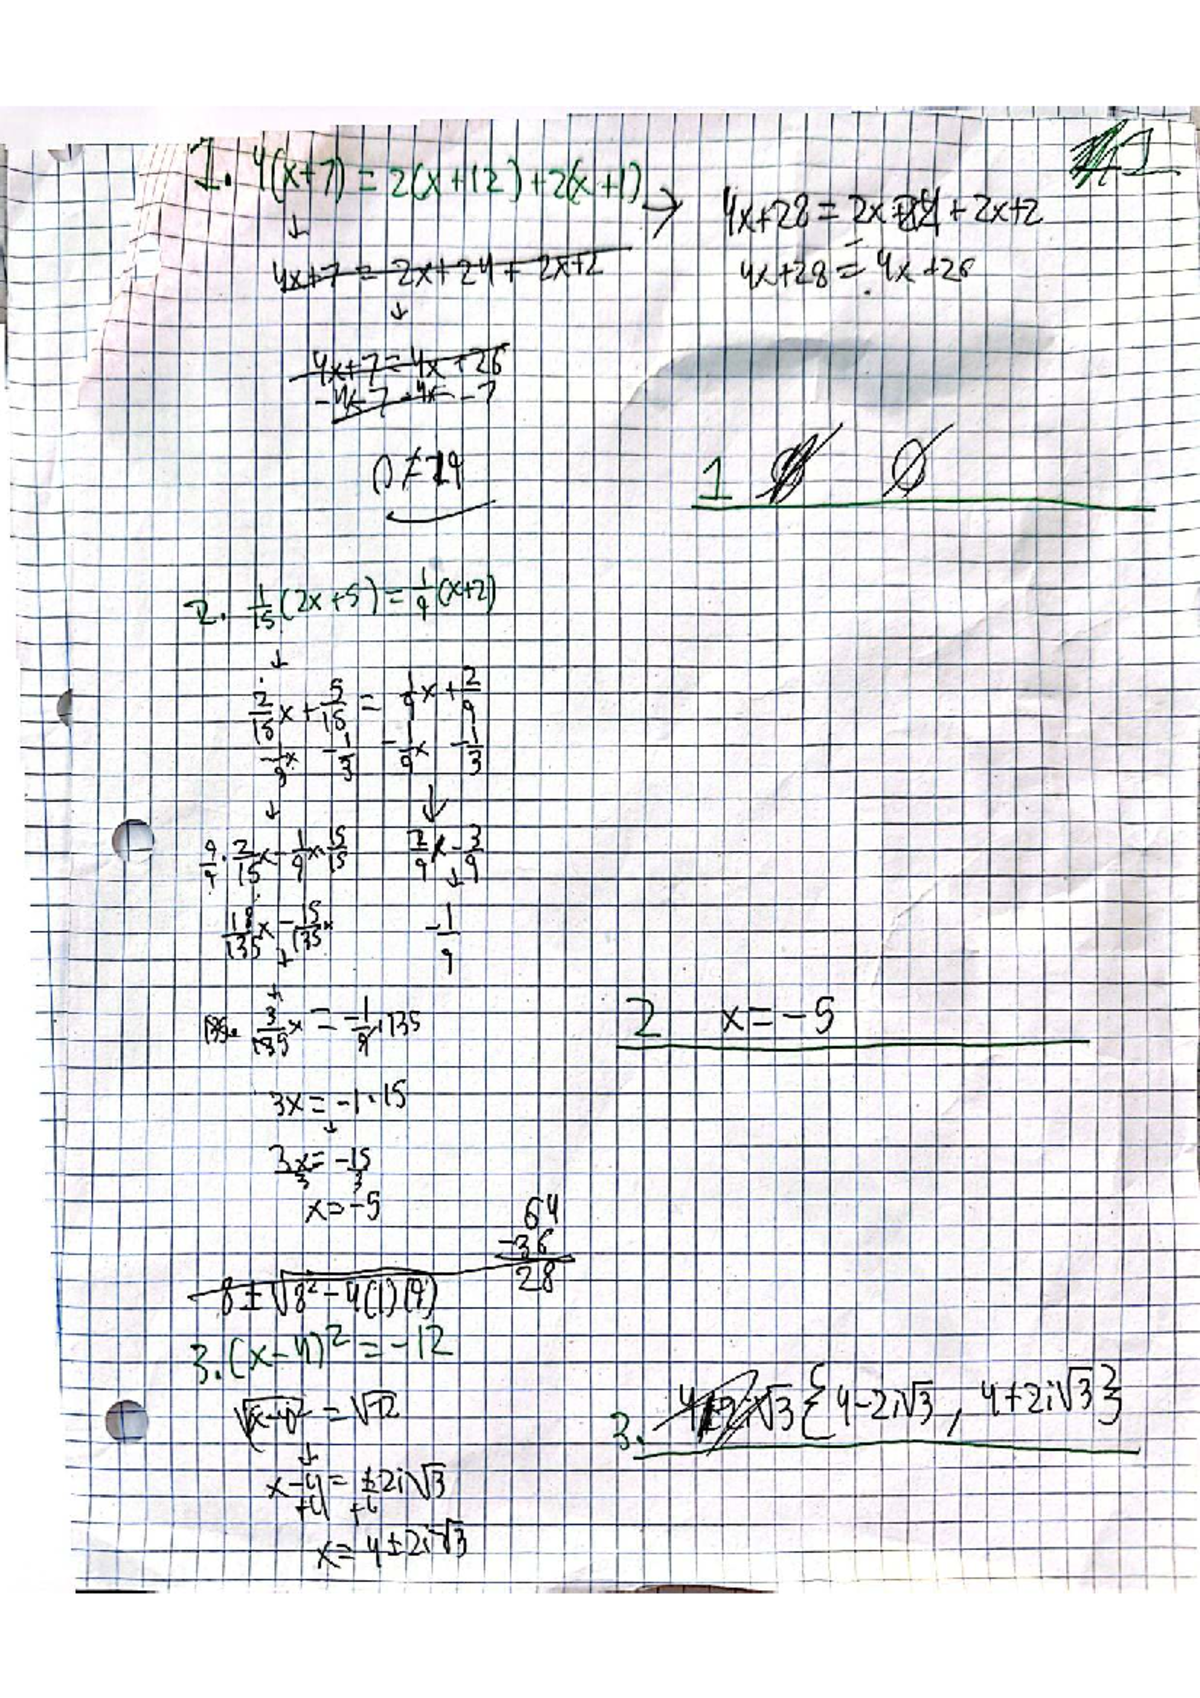 1. 4(x+7) = 2(x+12)+2(x+1) →
↓
4x+7 = 2x+24+2x+2
↓
4x+7=4x+26
-4x-7 -4x -7
0≠19
4x+28=2x+24+2x+2
4x+28=4x+26
1 ∅
2. 1/15(2x+5)=1/9(x+2)
↓
2/15x+5/15=1/9x+2/9
-1/9x -1/3 -1/9x -1/3
↓ ↓
9/9·2/15x-1/9x·15/15 2/9-3/9
↓
18/135x-15/135x -1/9
↓
135· 3/135x=-1/9·135
3x=-1·15
↓
3x/3=-15/3
x=-5
2 x=-5
64
-36
28
8±√8²-4(1)(9)
3. (x-4)²=-12
√(x-4)²=√-12
↓
x-4=±2i√3
+4 +4
x=4±2i√3
3. {4-2i√3, 4+2i√3}